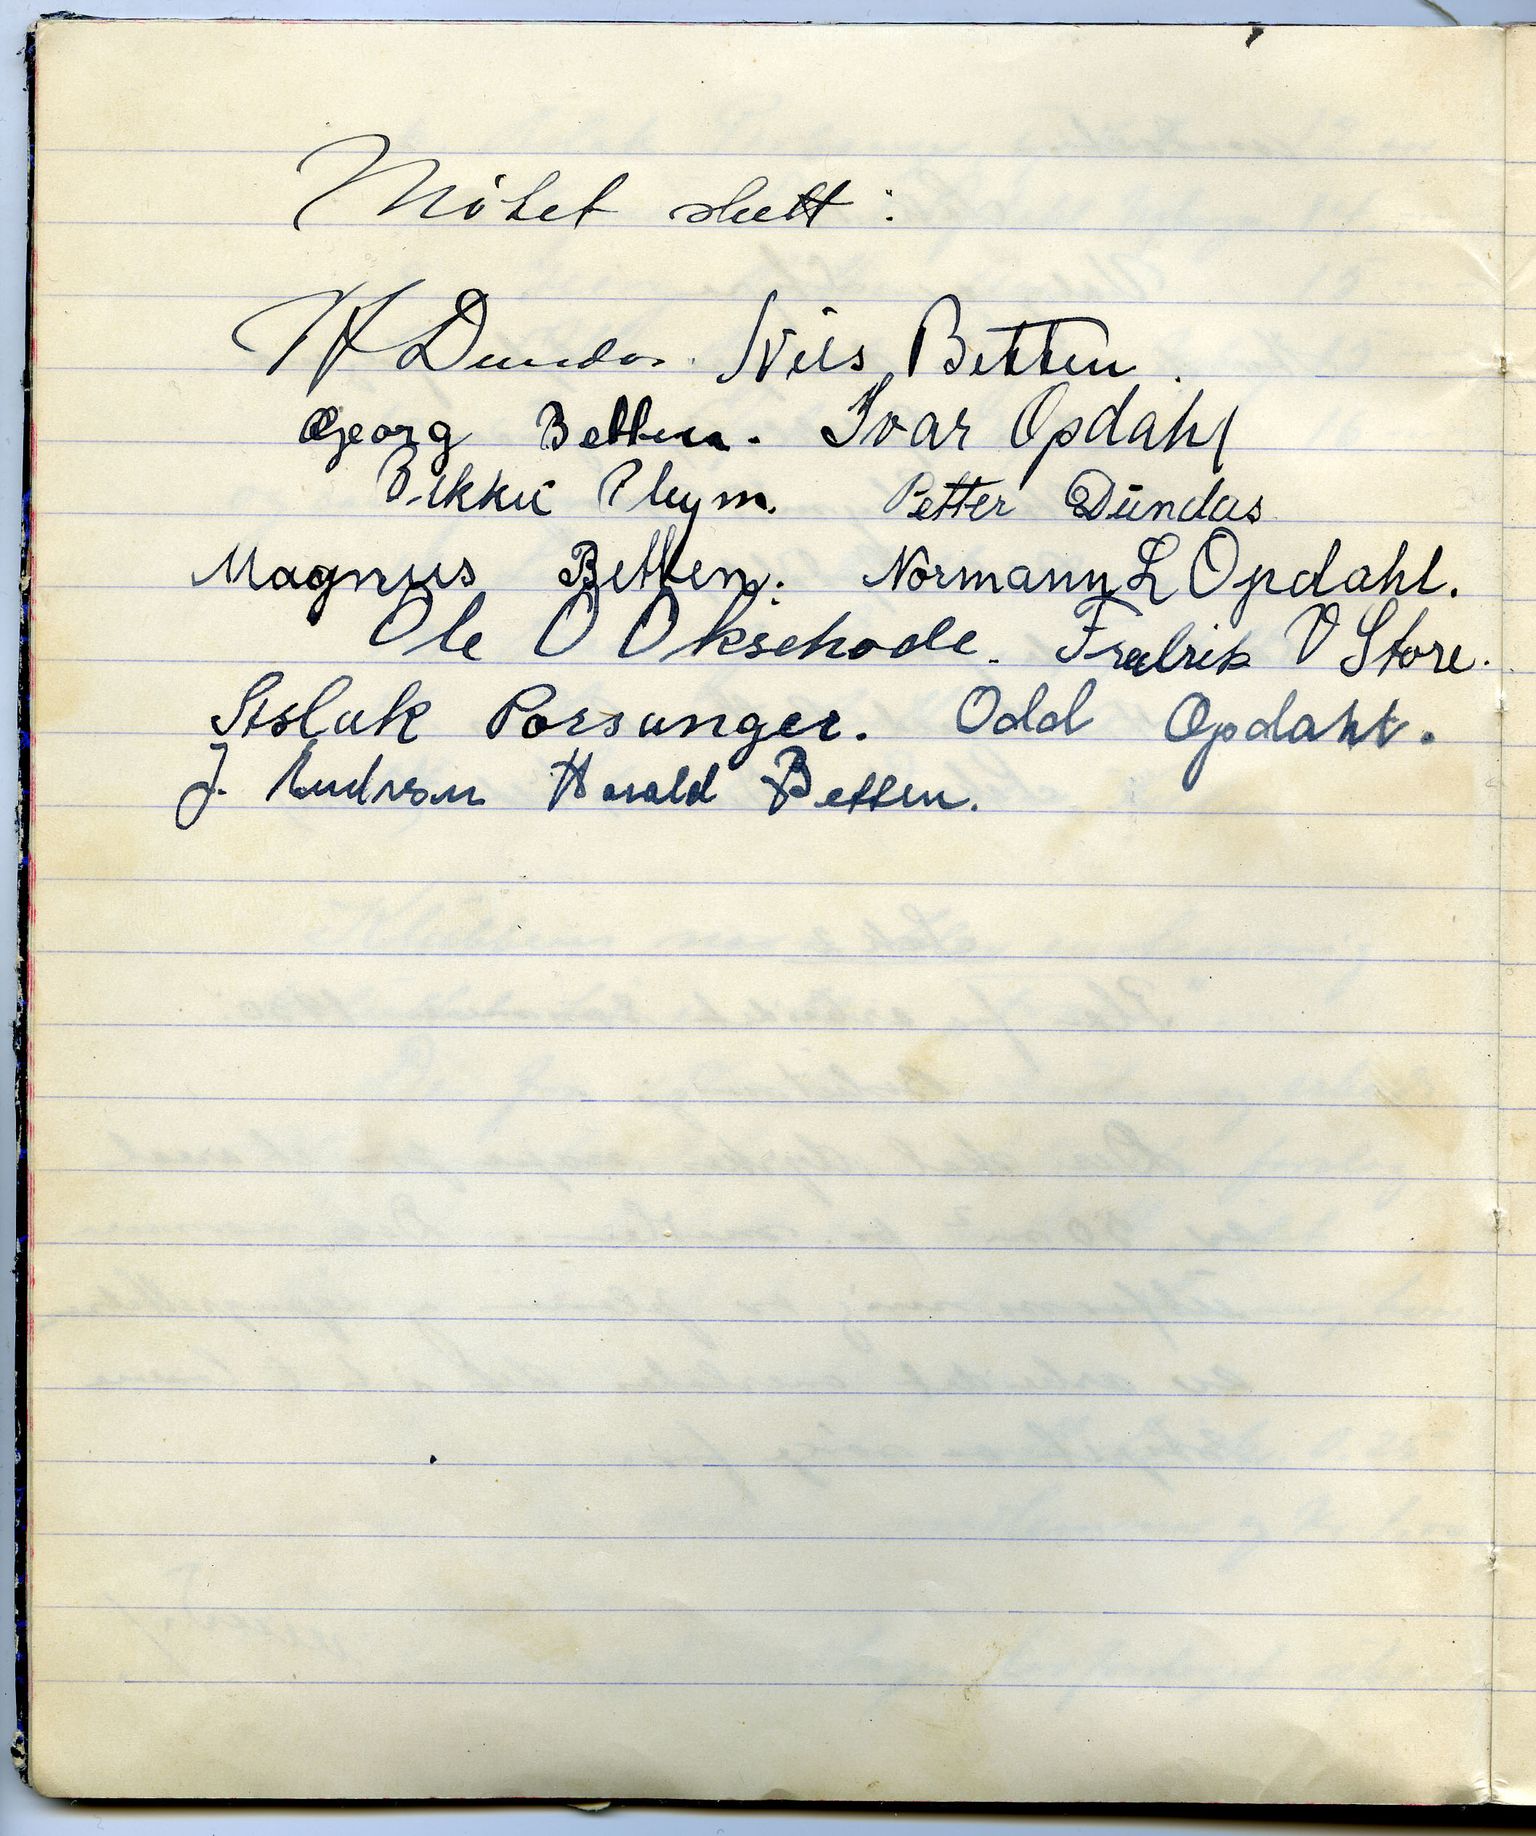 Møtet slutt:
Dundas. Nils Betten.
Georg Betten. Ivar Opdahl
Petter Dundas
Magnus Betten. Normann L Opdahl.
Ole O Okschode. Fredrik V Store.
Aslak Porsanger. Odd Opdahl.
J. Harald Betten.